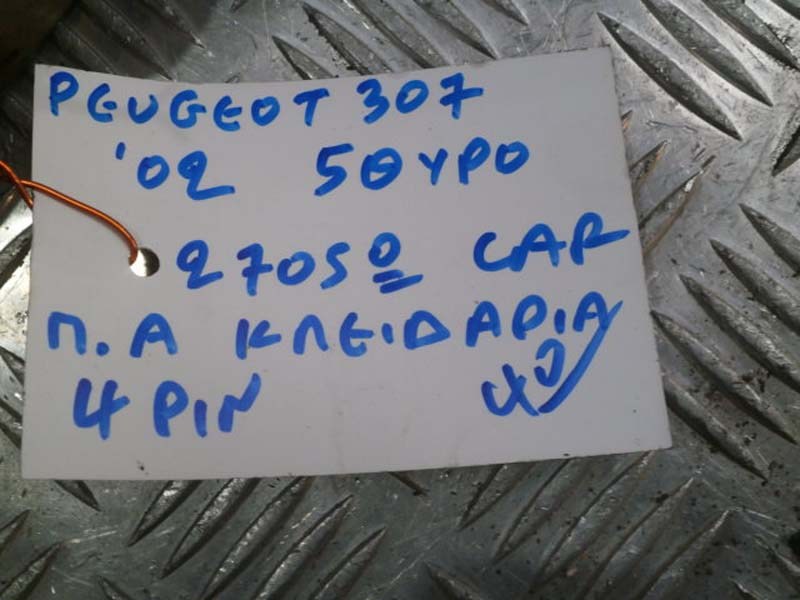 PEUGEOT 307
'02 5ΘΥΡΟ
27050 CAR
Π.Α ΚΛΕΙΔΑΡΙΑ
4 PIN